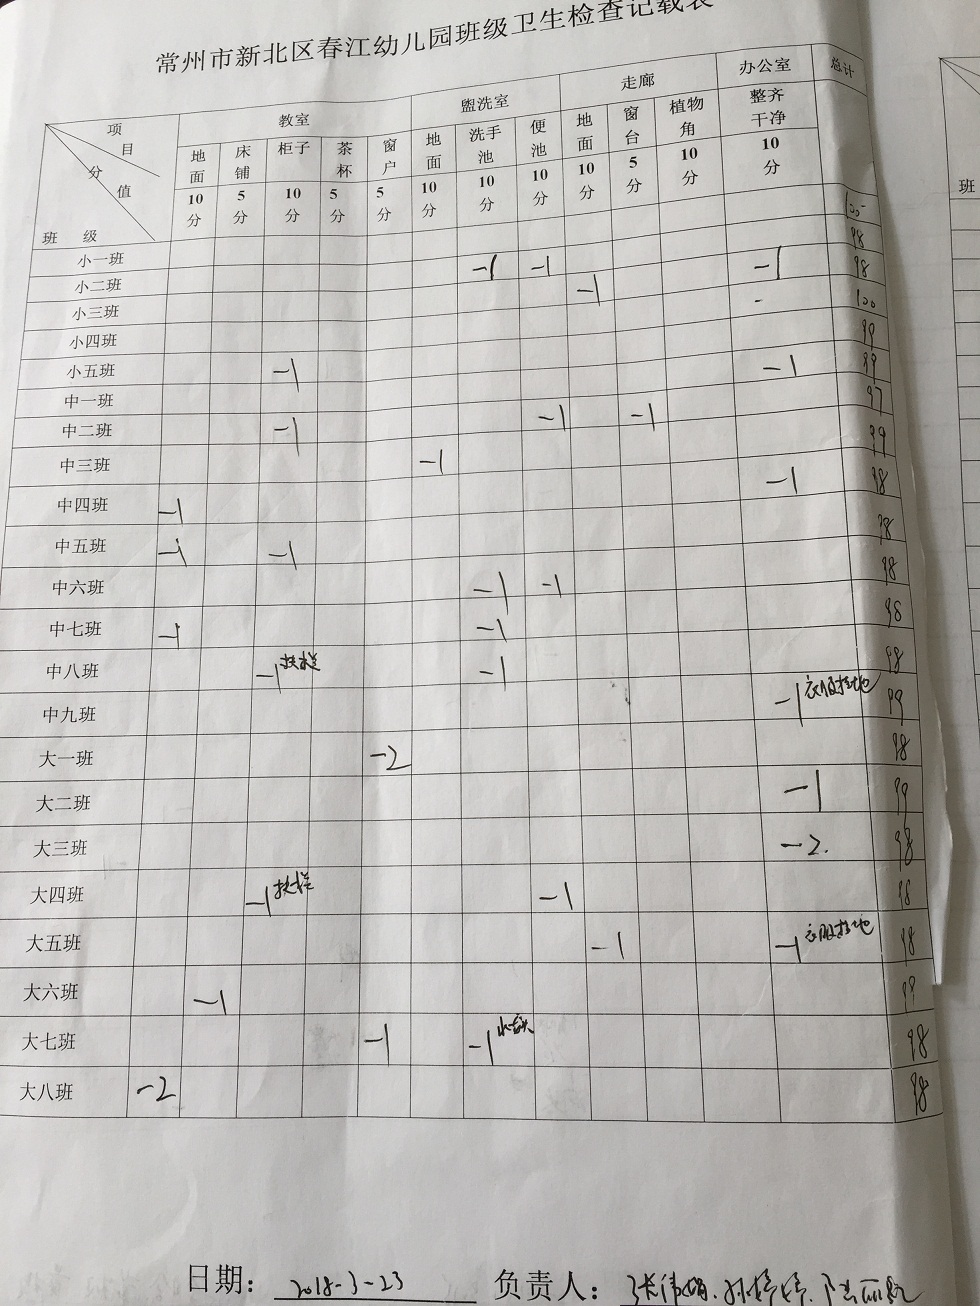 常州市新北区春江幼儿园班级卫生检查记载表
项目 教室 盥洗室 走廊 办公室 总计
分值 地面 床铺 柜子 茶杯 窗户 地面 洗手池 便池 地面 窗台 植物角 整齐干净
班级 10分 5分 10分 5分 5分 10分 10分 10分 10分 5分 10分 10分
班
小一班 100
小二班 -1 -1 98
小三班 -1 -1 98
小四班 - 100
小五班 -1 99
中一班 -1 99
中二班 -1 -1 -1 97
中三班 -1 99
中四班 -1 -1 98
中五班 -1 -1 98
中六班 -1 -1 98
中七班 -1 -1 98
中八班 -1扶栏 -1 98
中九班 -1衣服拉地 99
大一班 -2 98
大二班 -1 99
大三班 -2. 98
大四班 -1扶栏 -1 98
大五班 -1 -1衣服拉地 98
大六班 -1 99
大七班 -1 -1 98
大八班 -2 98
日期：2018-3-23 负责人：张伟娟、孙婷婷、